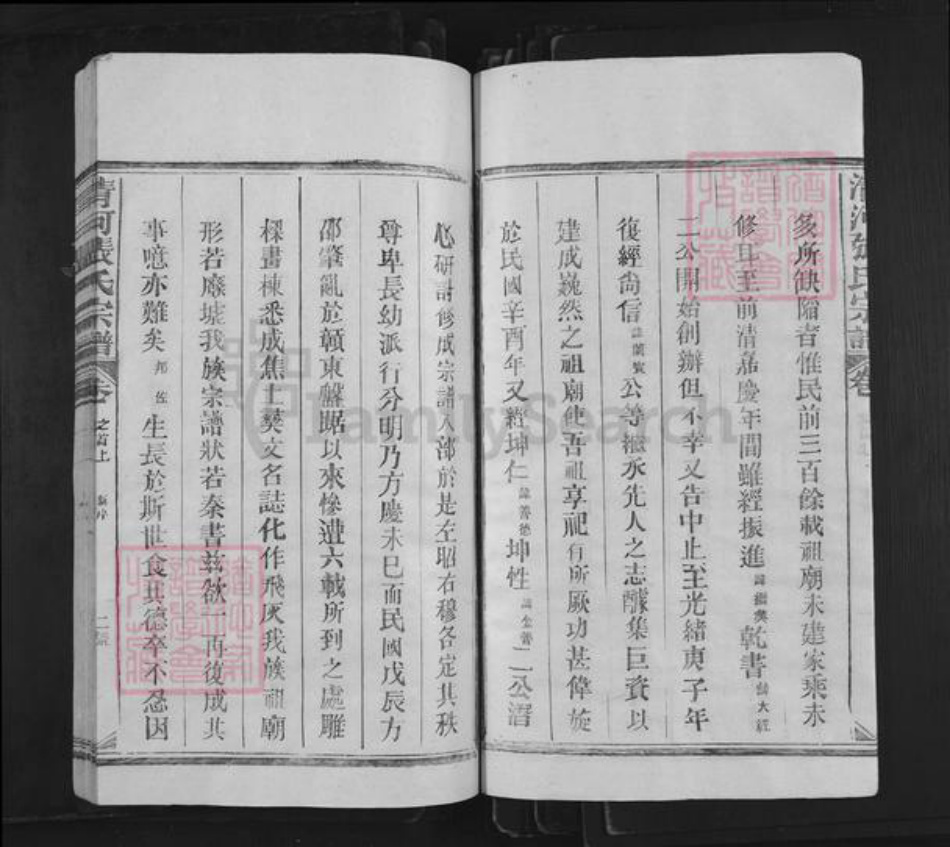 清河張氏宗譜 卷
多所缺陷者惟民前三百餘載祖廟未建家乘未
修耳至前清嘉慶年間雖經振進諱繼美乾書諱大經
二公開始創辦但不幸又告中止至光緒庚子年
復經尙信諱蘭賓公等繼承先人之志醵集巨資以
建成巍然之祖廟使吾祖享祀有所厥功甚偉旋
於民國辛酉年又經坤仁諱善德坤性諱金善二公潛
心研討修成宗譜八部於是左昭右穆各定其秩
尊卑長幼派行分明乃方慶未已而民國戊辰方
邵肇亂於贛東盤踞以來慘遭六載所到之處雕
樑畫棟悉成焦土藝文名誌化作飛灰我族祖廟
形若廢墟我族宗譜狀若秦書茲欲一再復成其
事噫亦難矣邦佐生長於斯世食其德卒不忍因
清河張氏宗譜 卷 之首上 新序 二
FamilySearch